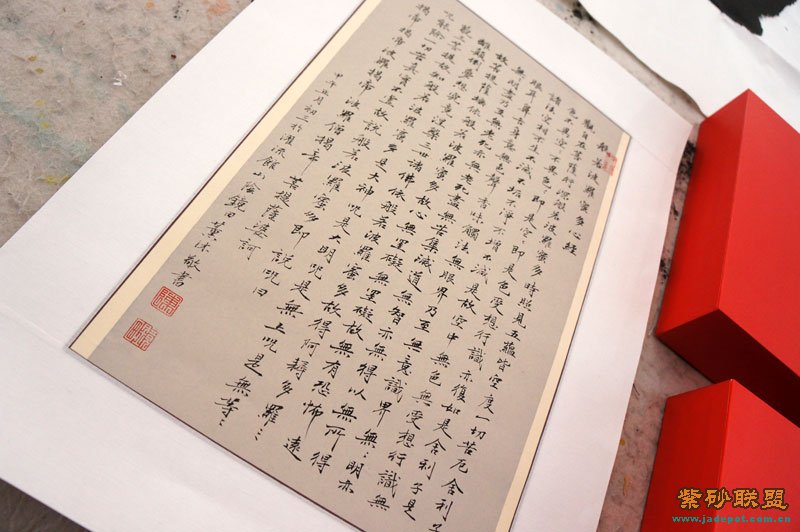 般若波羅蜜多心經
觀自在菩薩行深般若波羅蜜多時照見五蘊皆空度一切苦厄舍利子
色不異空空不異色色即是空空即是色受想行識亦復如是舍利子是
諸法空相不生不滅不垢不淨不增不減是故空中無色無受想行識無
眼耳鼻舌身意無色聲香味觸法無眼界乃至無意識界無〻明亦
無〻明盡乃至無老死亦無老死盡無苦集滅道無智亦無得以無所得
故菩提薩埵依般若波羅蜜多故心無罣礙無罣礙故無有恐怖遠
離顛倒夢想究竟涅槃三世諸佛依般若波羅蜜多故得阿耨多羅三
藐三菩提故知般若波羅蜜多是大神咒是大明咒是無上咒是無等〻
咒能除一切苦真實不虛故說般若波羅蜜多咒即說咒曰
揭帝揭帝波羅揭帝波羅僧揭帝菩提薩婆訶
甲午五月初三於灌流館山陰鏡日薰沐敬書
紫砂联盟
www.jadepot.com.cn